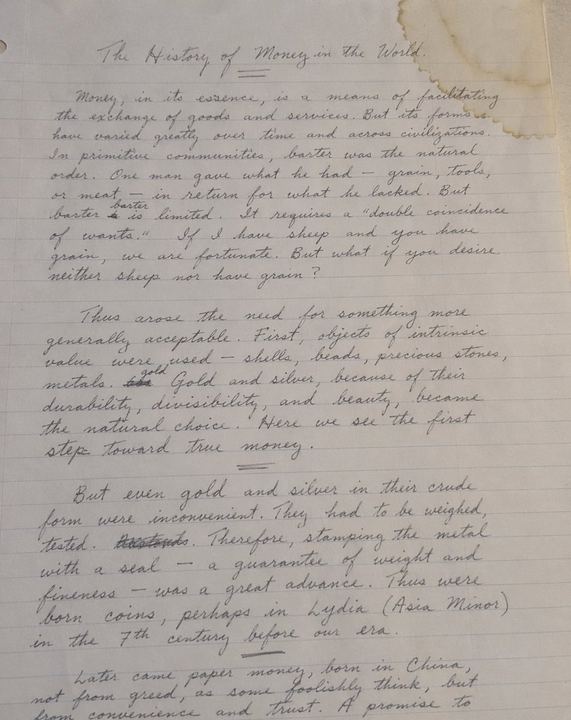 The History of Money in the World.
Money, in its essence, is a means of facilitating
the exchange of goods and services. But its forms
have varied greatly over time and across civilizations.
In primitive communities, barter was the natural
order. One man gave what he had – grain, tools,
or meat – in return for what he lacked. But
barter
barter is limited. It requires a "double coincidence
of wants." If I have sheep and you have
grain, we are fortunate. But what if you desire
neither sheep nor have grain?
Thus arose the need for something more
generally acceptable. First, objects of intrinsic
value were used – shells, beads, precious stones,
gold
metals. Gold and silver, because of their
durability, divisibility, and beauty, became
the natural choice. Here we see the first
step toward true money.
But even gold and silver in their crude
form were inconvenient. They had to be weighed,
tested. Therefore, stamping the metal
with a seal – a guarantee of weight and
fineness – was a great advance. Thus were
born coins, perhaps in Lydia (Asia Minor)
in the 7th century before our era.
Later came paper money, born in China,
not from greed, as some foolishly think, but
from convenience and trust. A promise to